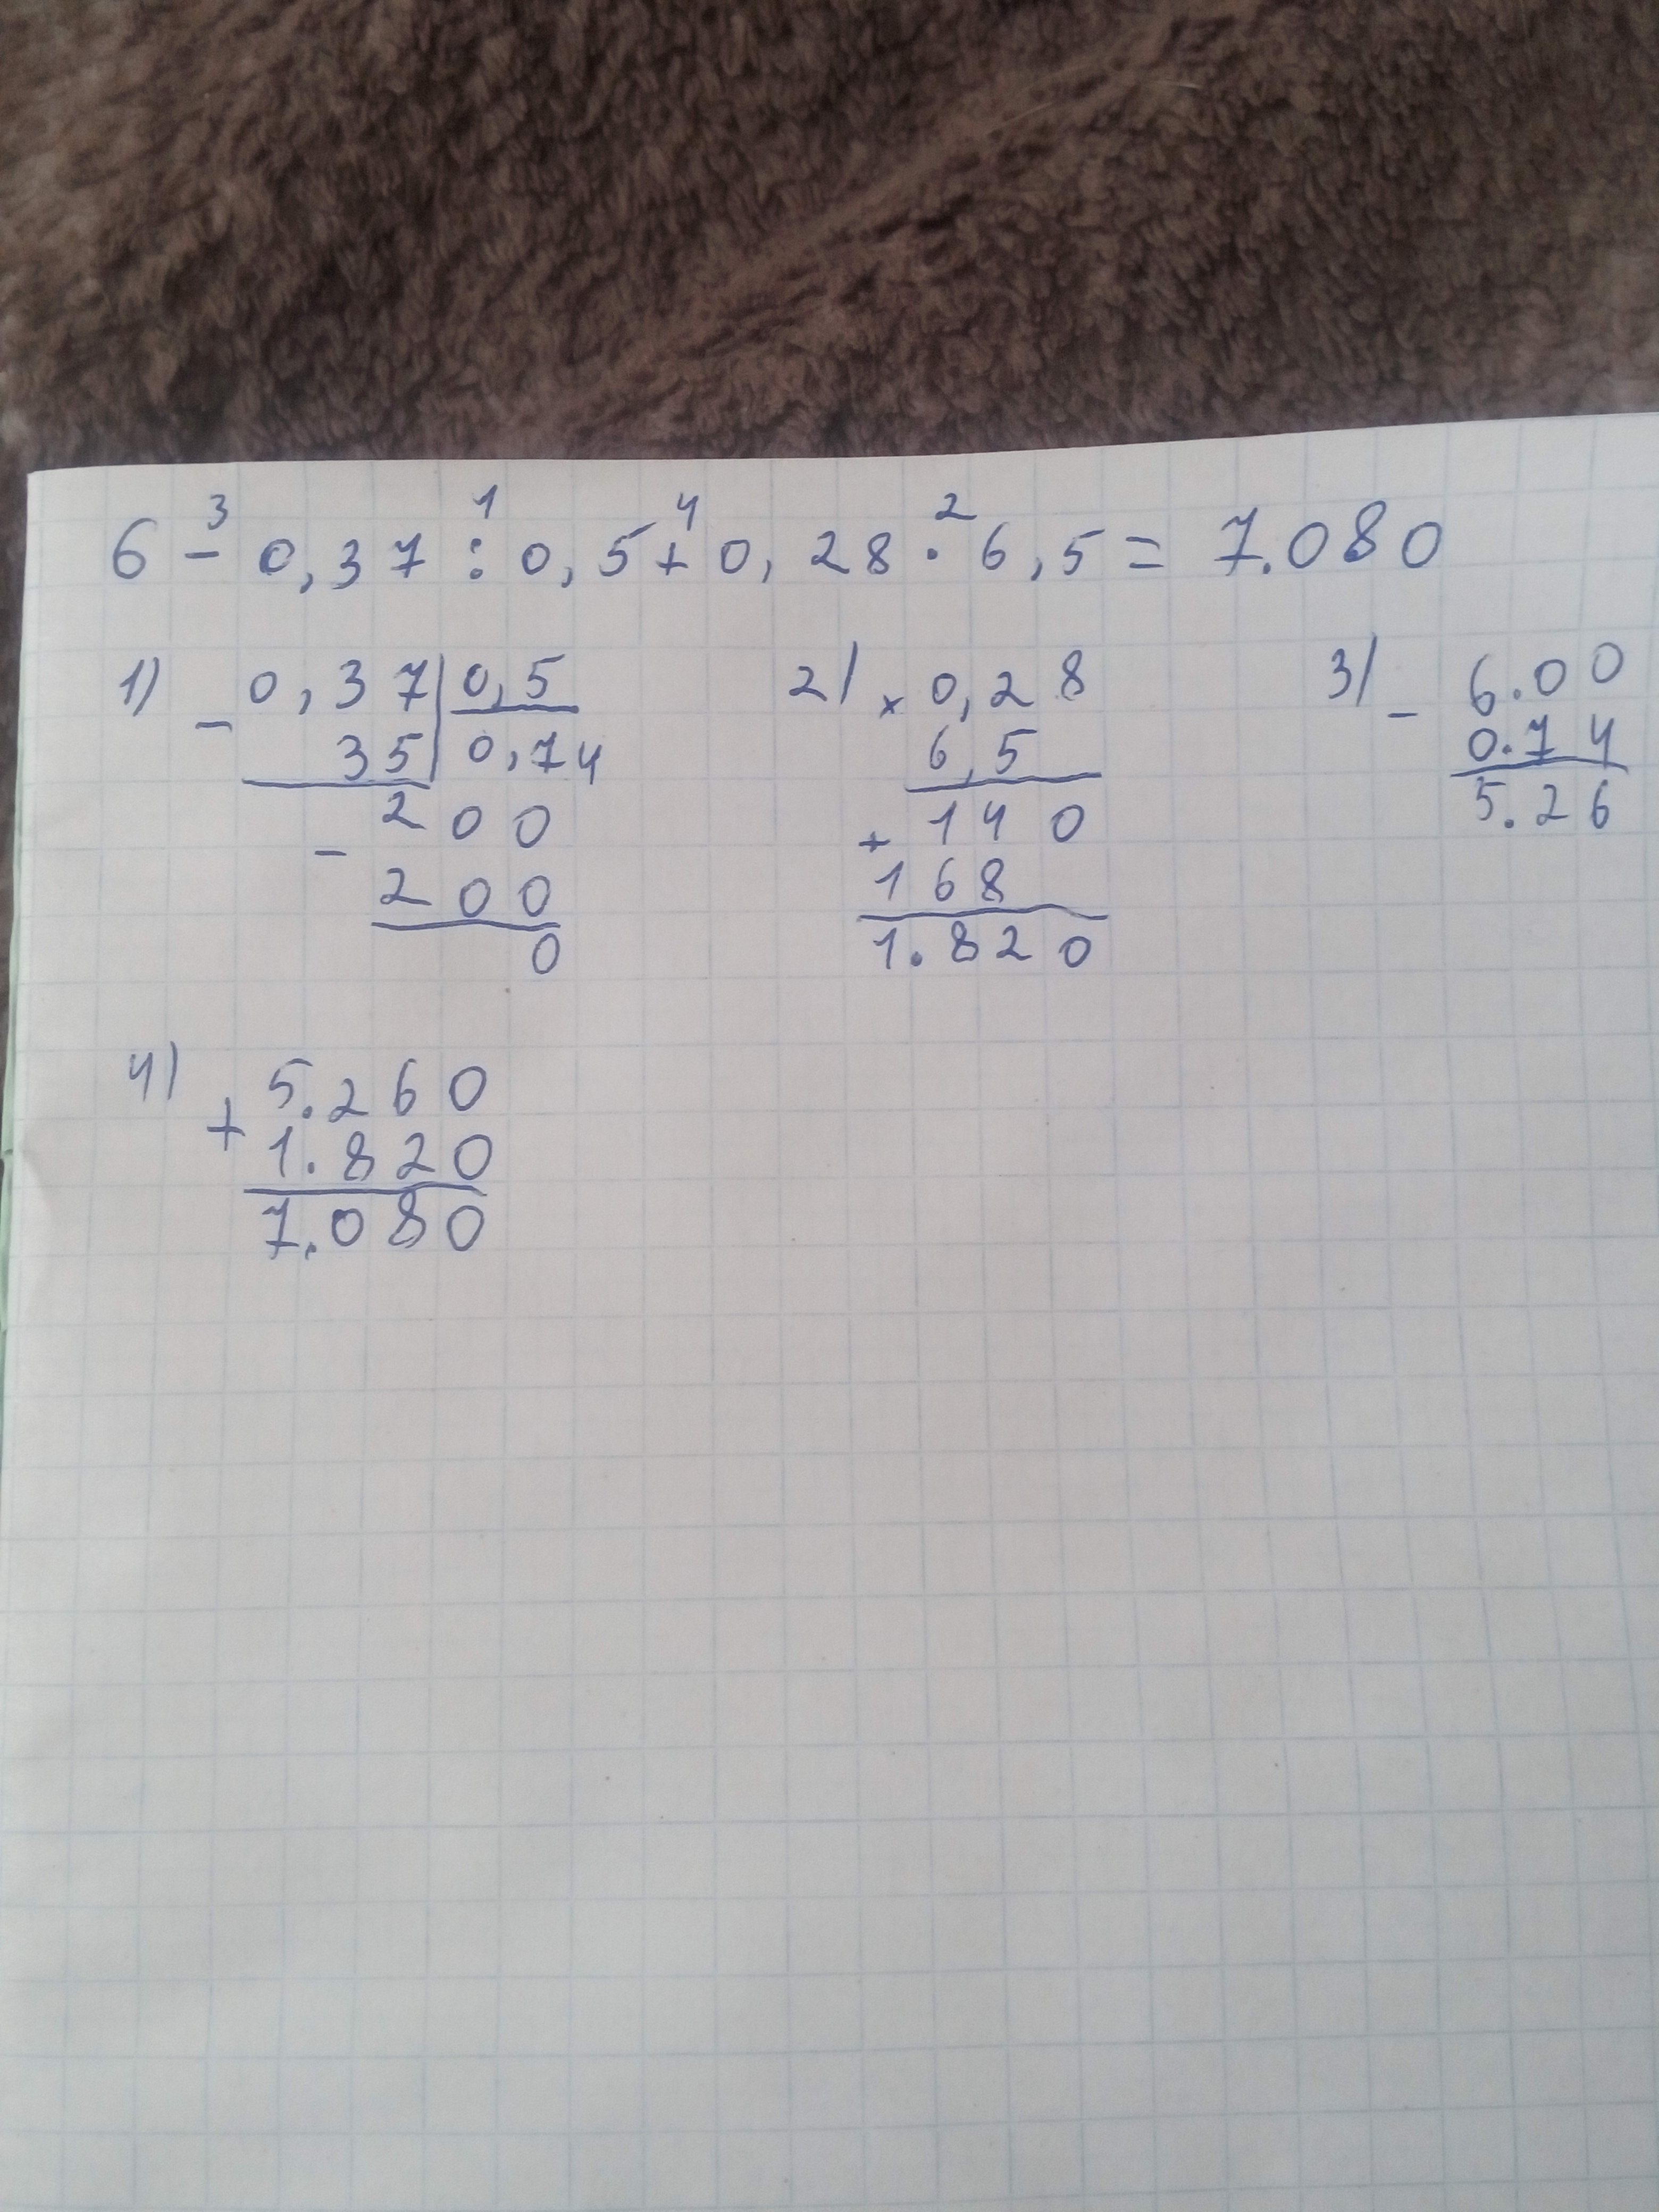 3 1 4 2
6 - 0,37 : 0,5 + 0,28 · 6,5 = 7.080
1) - 0,37 | 0,5
35 | 0,74
- 200
200
0
2) × 0,28
6,5
+ 140
168
1.820
3) - 6.00
0.74
5.26
4) + 5.260
1.820
7.080